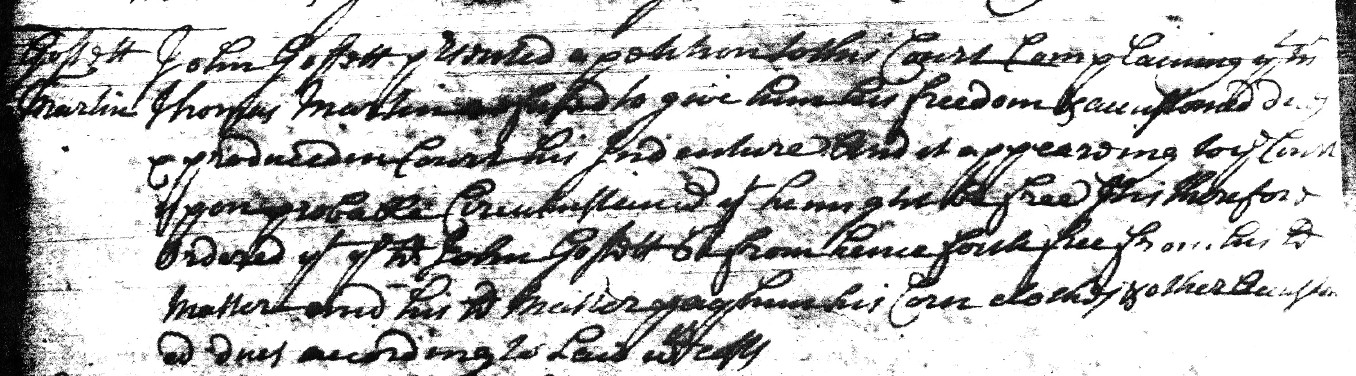 Gossett John Gossett presented a petition to this Court Complaining yt his
Martin Thomas Martin refused to give him his freedom & accustomed
& produced in Court his Indenture And it appearing to ye Court
upon probable Circumstances yt he might be free Itis therefore
Ordered yt ye sd John Gossett be from hence forth free from his sd
Master and his sd Master pay him his Corn cloths & other
ed dues according to Law wth costs